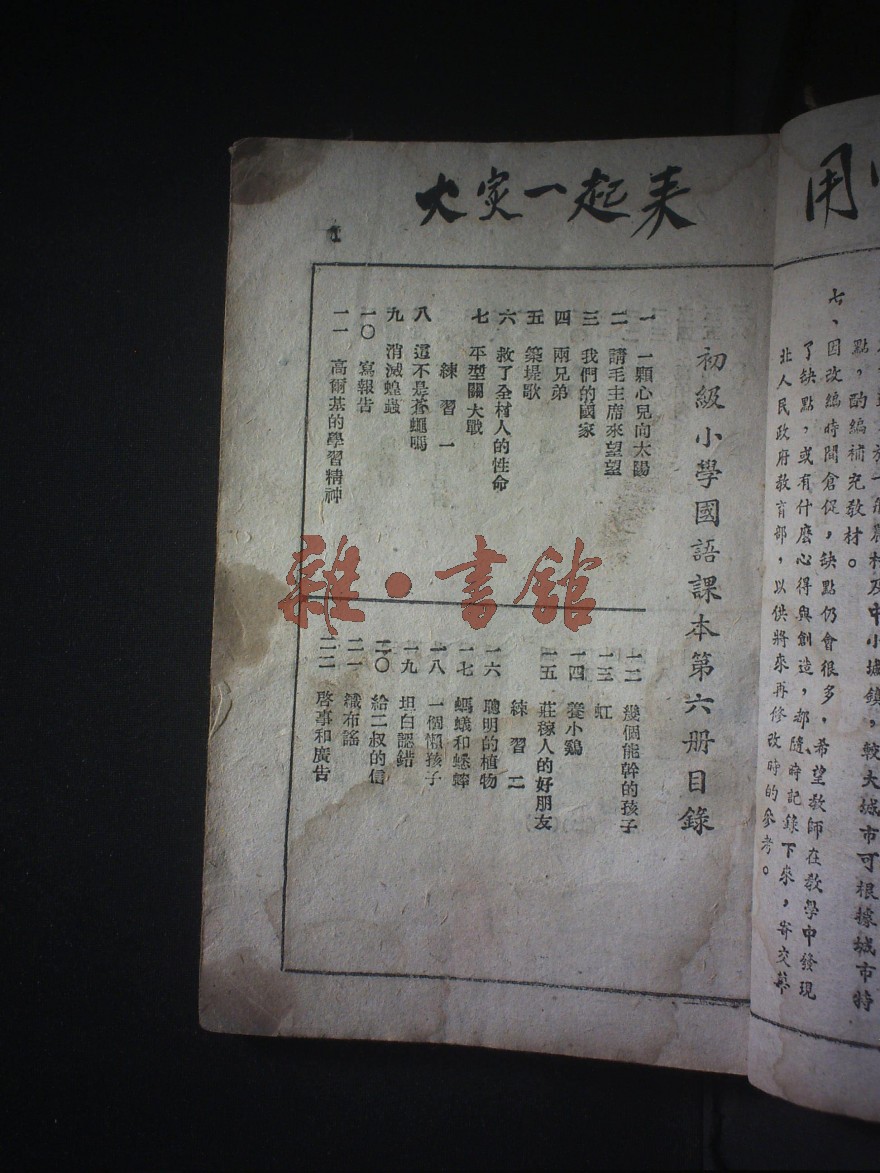 用
七、因改編時間倉促，缺點仍會很多，希望教師在教學中發現
了缺點，或有什麼心得與創造，都隨時記錄下來，寄交華
北人民政府教育部，以供將來再修改時的參考。
點，酌編補充教材。
一般農村及中小城鎮，較大城市可根據城市特
大家一起来
初級小學國語課本第六册目錄
一 一顆心兒向太陽
二 請毛主席來望望
三 我們的國家
四 兩兄弟
五 築堤歌
六 救了全村人的性命
七 平型關大戰
練習一
八 這不是蒼蠅嗎
九 消滅蝗蟲
一〇 寫報告
一一 高爾基的學習精神
一二 幾個能幹的孩子
一三 虹
一四 養小鷄
一五 莊稼人的好朋友
練習二
一六 聰明的植物
一七 螞蟻和蟋蟀
一八 一個懶孩子
一九 坦白認錯
二〇 給二叔的信
二一 織布謠
二二 啓事和廣告
雜·書館